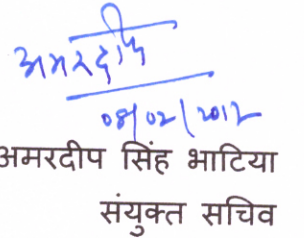 अमरदीप
08/02/2012
अमरदीप सिंह भाटिया
संयुक्त सचिव